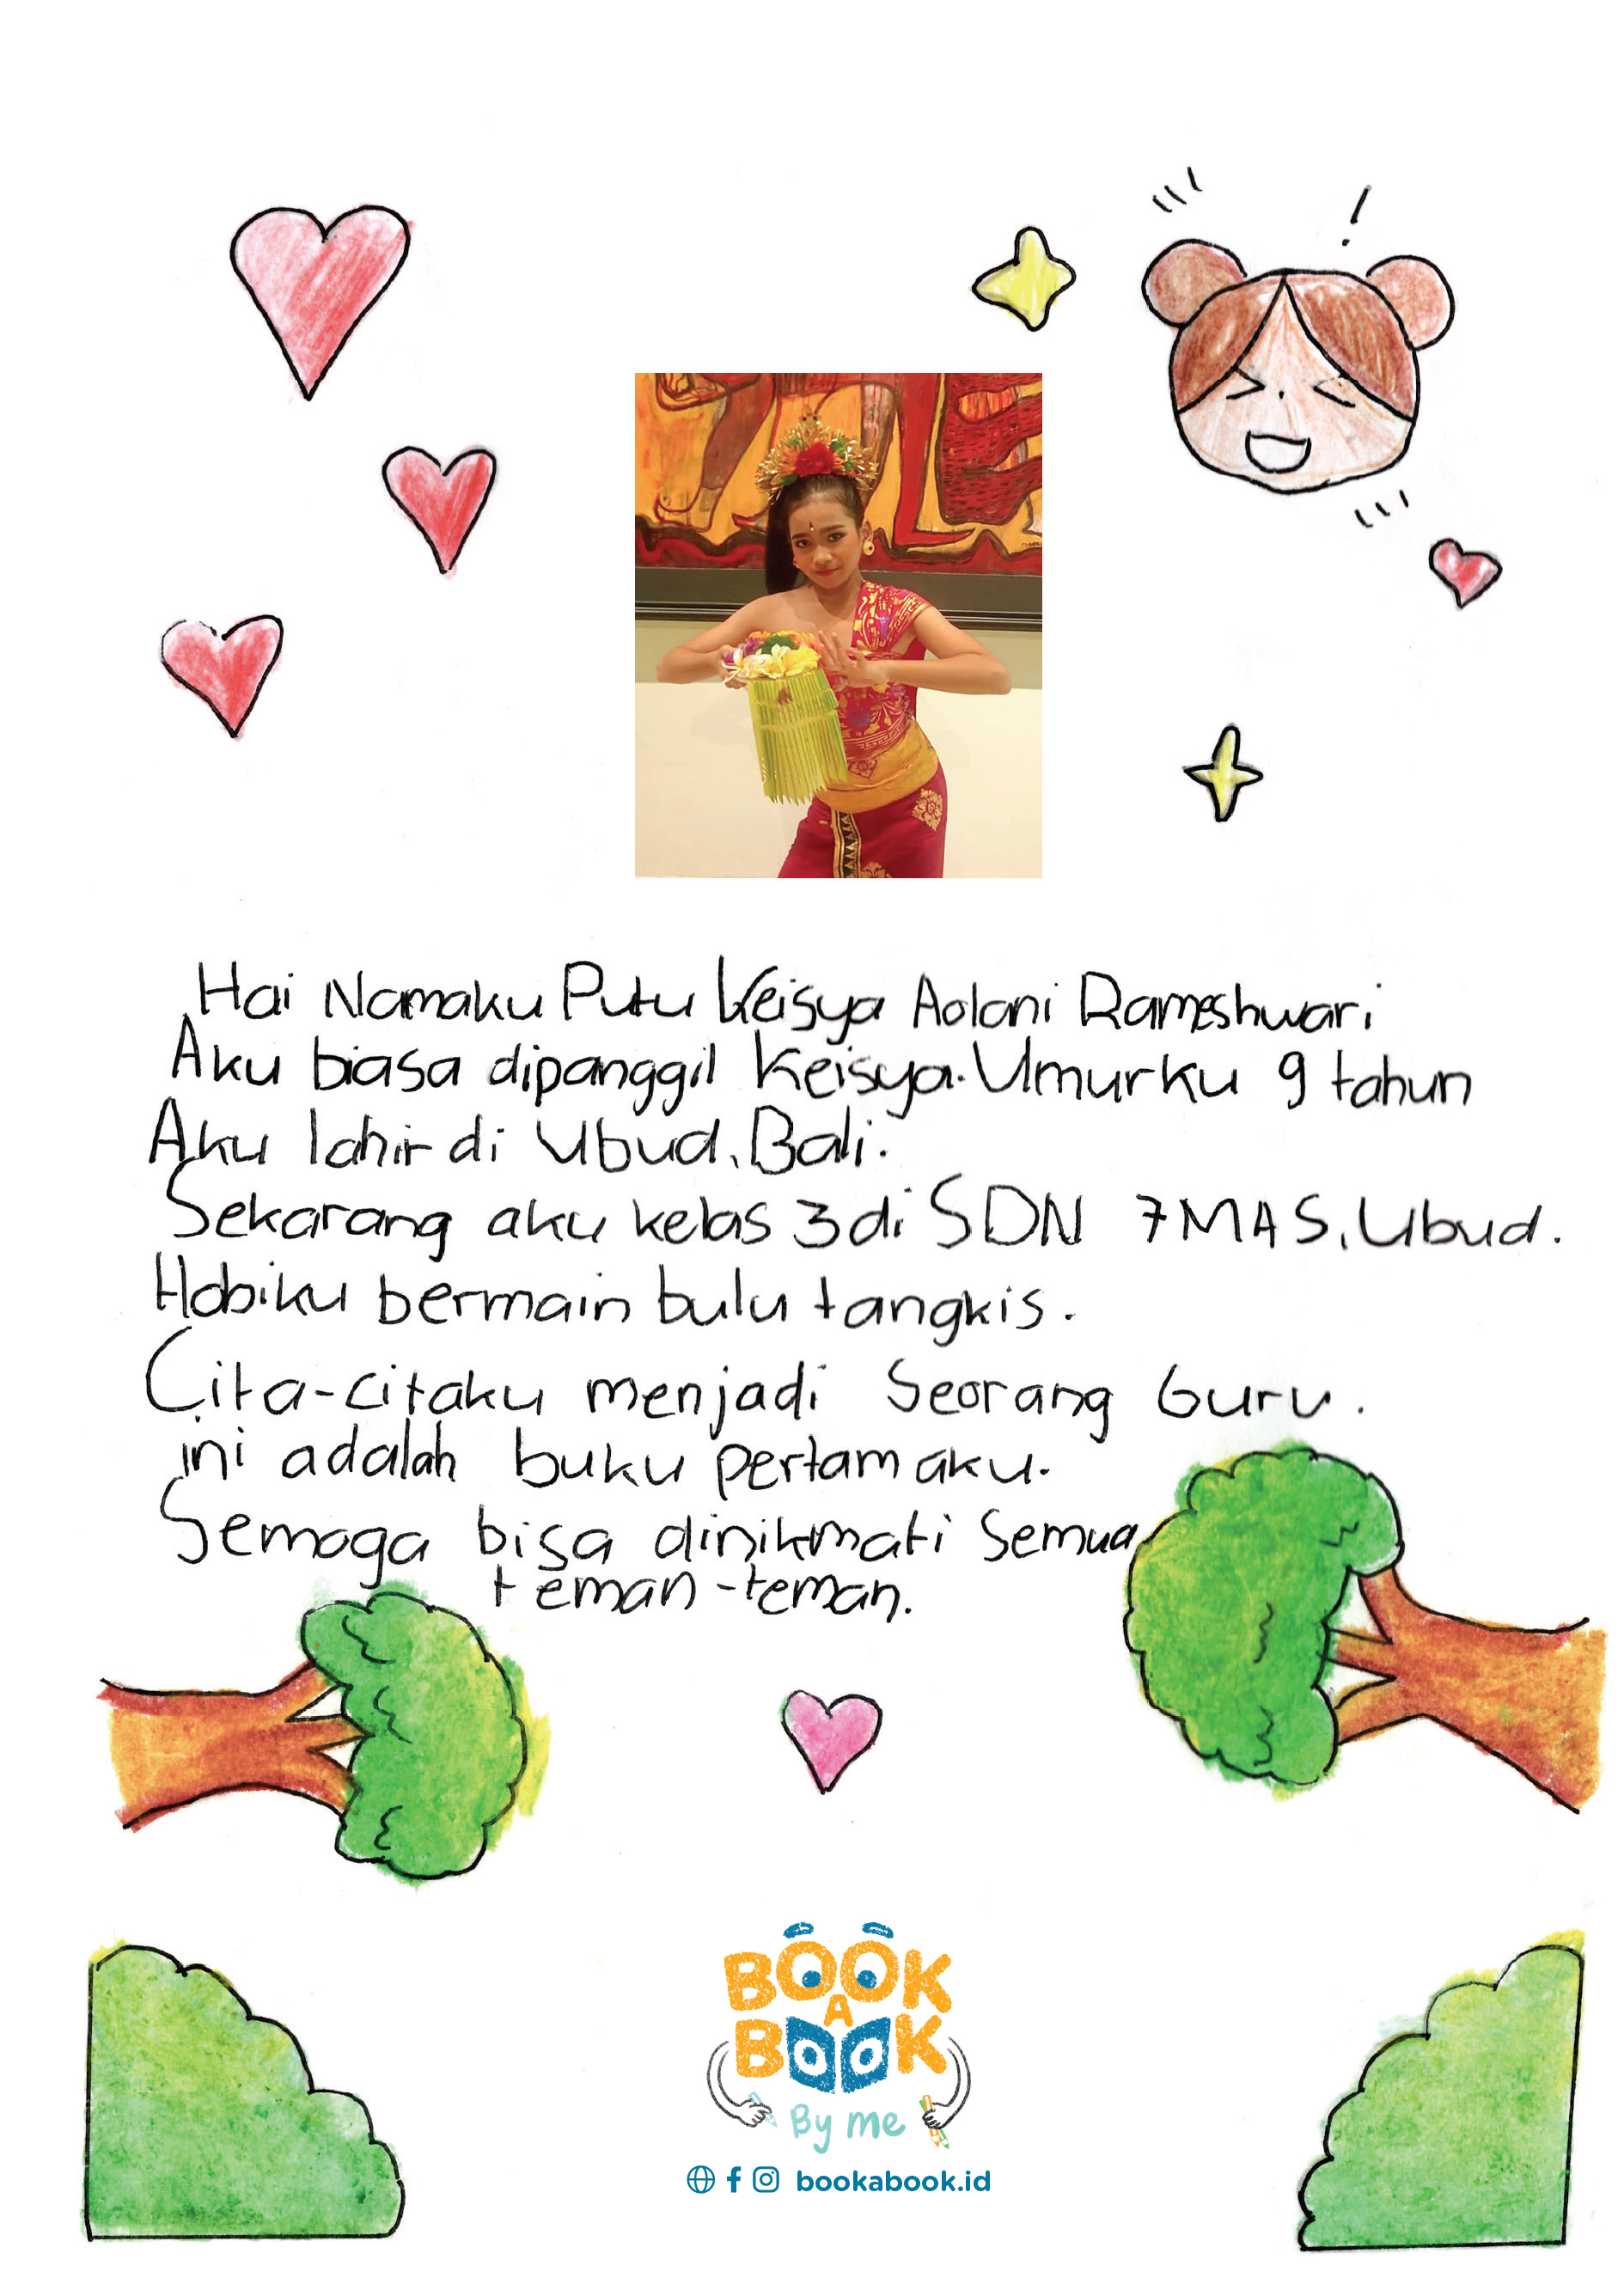 Hai Namaku Putu Keisya Aolani Rameshwari
Aku biasa dipanggil Keisya. Umurku 9 tahun
Aku lahir di Ubud, Bali.
Sekarang aku kelas 3 di SDN 7 MAS, Ubud.
Hobiku bermain bulu tangkis.
Cita-citaku menjadi Seorang Guru.
ini adalah buku pertamaku.
Semoga bisa dinikmati Semua
teman-teman.
BOOK
A
BOOK
By me
bookabook.id